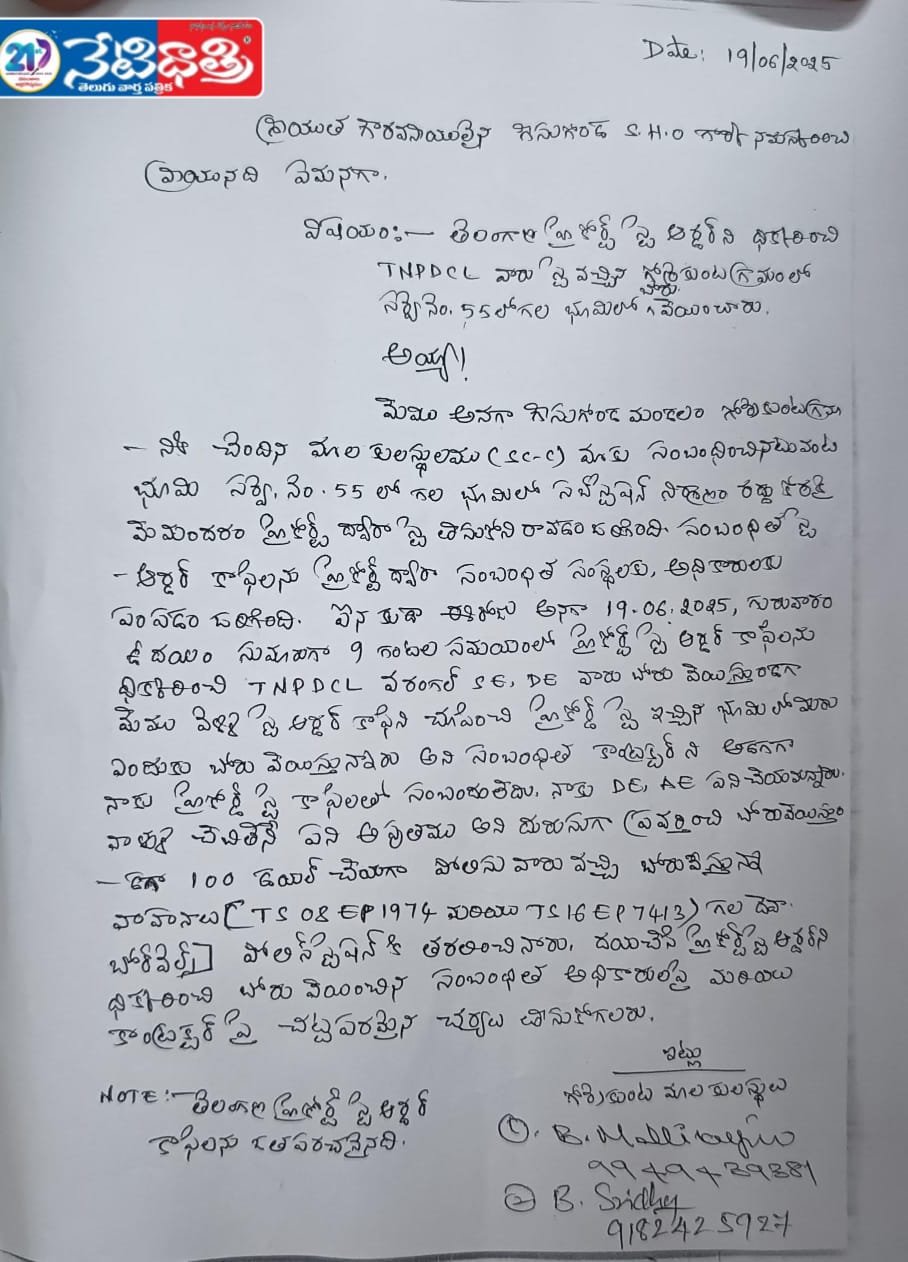 21
నేటిధాత్రి
తెలుగు వార్తా పత్రిక
Date: 19/06/2025
శ్రీయుత గౌరవనీయులైన గీసుగొండ S.H.O గారికి నమస్కరించి
వ్రాయునది ఏమనగా.
విషయం:- తెలంగాణ హైకోర్ట్ స్టే ఆర్డర్ ని ధిక్కరించి
TNPDCL వారు స్టే వచ్చిన గొర్రెకుంట గ్రామంలో
సర్వే నెం. 55 లో గల భూమిలో బోరు వేయించారు.
అయ్యా!
మేము అనగా గీసుగొండ మండలం గొర్రెకుంట గ్రామా
- నికి చెందిన మాల కులస్థులము (SC-C) మాకు సంబంధించినటువంటి
భూమి సర్వే. నెం. 55 లో గల భూమిలో సబ్ స్టేషన్ నిర్మాణం రద్దు కొరకై
మేమందరం హైకోర్ట్ ద్వారా స్టే తీసుకొని రావడం జరిగింది. సంబంధిత స్టే
- ఆర్డర్ కాపీలను హైకోర్ట్ ద్వారా సంబంధిత సంస్థలకు, అధికారులకు
పంపడం జరిగింది. ఐన కూడా ఈరోజు అనగా 19.06.2025, గురువారం
ఉదయం సుమారుగా 9 గంటల సమయంలో హైకోర్ట్ స్టే ఆర్డర్ కాపీలను
ధిక్కరించి TNPDCL వరంగల్ SE, DE వారు బోరు వేయిస్తుండగా
మేము వెళ్లి స్టే ఆర్డర్ కాపీని చూపించి హైకోర్ట్ స్టే ఇచ్చిన భూమిలో మీరు
ఎందుకు బోరు వేయిస్తున్నారు అని సంబంధిత కాంట్రాక్టర్ ని అడగగా
నాకు హైకోర్ట్ స్టే కాపీలతో సంబందంలేదు. నాకు DE, AE పని చేయమన్నారు.
వాళ్లు చెబితేనే పని ఆపుతము అని దురుసుగా ప్రవర్తించి బోరువేయిస్తుం
- డగా 100 డయల్ చేయగా పోలీసు వారు వచ్చి బోరువేస్తున్న
వాహనాలు [TS 08 EP 1974 మరియు TS 16 EP 7413) గల దేవా
బోర్‌వెల్స్] పోలీస్ స్టేషన్ కి తరలించినారు. దయచేసి హైకోర్ట్ స్టే ఆర్డర్ ని
ధిక్కరించి బోరు వేయించిన సంబంధిత అధికారులపై మరియు
కాంట్రాక్టర్ పై చట్టపరమైన చర్యలు తీసుకోగలరు.
ఇట్లు
గొర్రెకుంట మాల కులస్థులు
NOTE:- తెలంగాణ హైకోర్ట్ స్టే ఆర్డర్
కాపీలను జతపరచనైనది.
①. B. Mallikarjun
9949439381
② B. Sridhar
9182425927